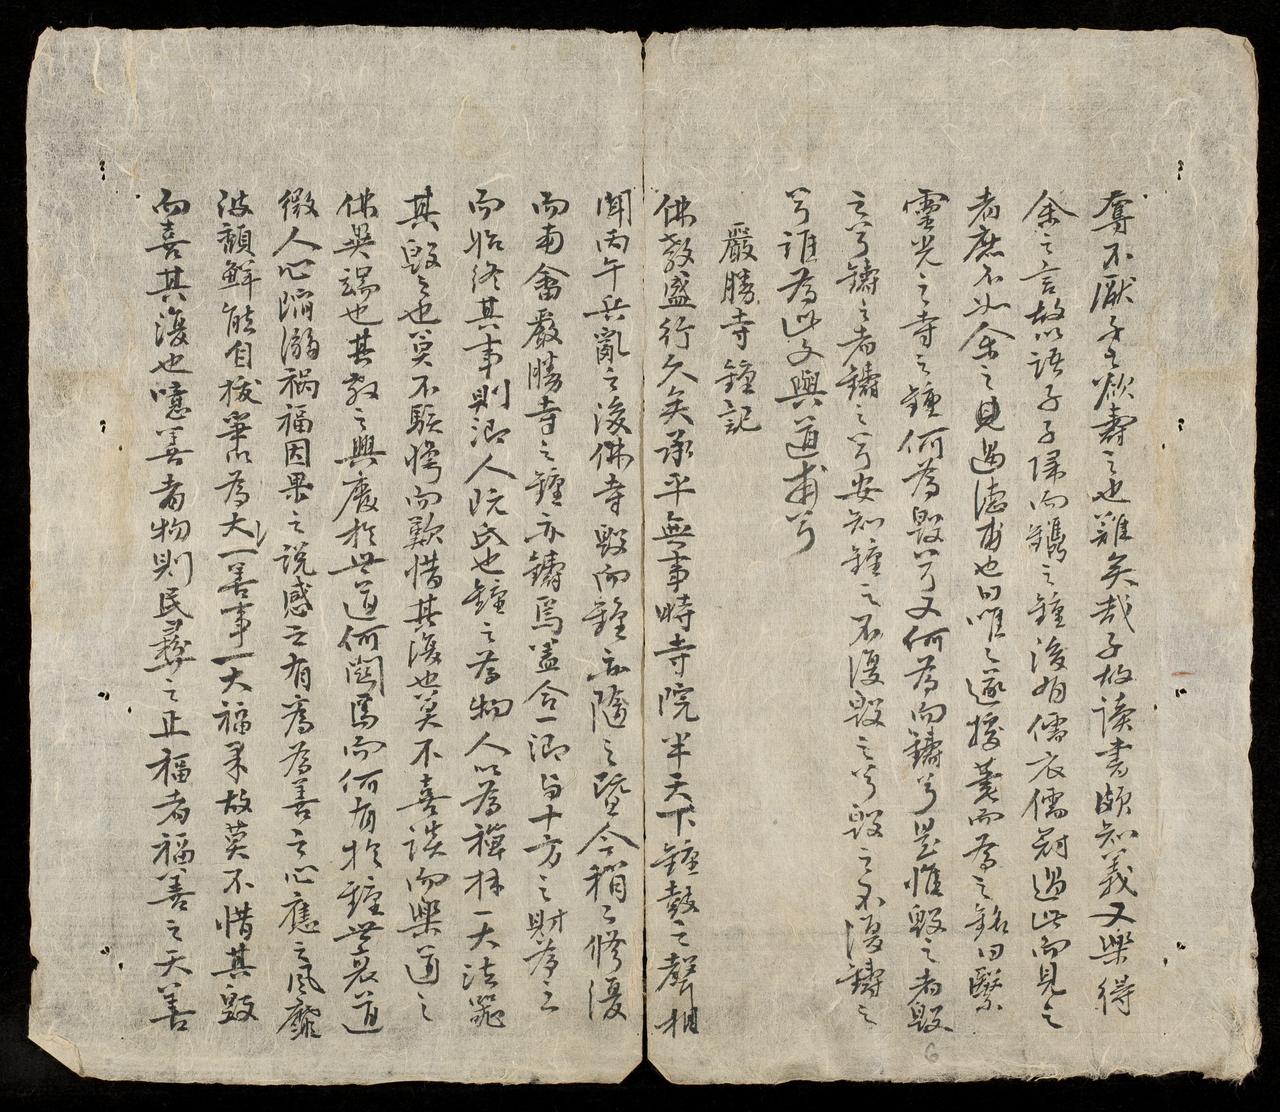 奪不厭子之欲壽之也難矣哉子故讀書頗知義又樂得
余之言故以語子子歸而鐫之鐘後有儒衣儒冠過此而見之
者庶不必余之見過德甫也曰唯之遂援筆而為之銘曰繄
靈光之寺之鐘何為毀兮又何為而鑄兮思惟毀之者毀
之兮鑄之者鑄之兮安知鐘之不復毀之兮毀之不復鑄之
兮誰為此文與道甫兮
嚴勝寺鐘記
佛教盛行久矣承平無事時寺院半天下鐘鼓之聲相
聞丙午兵亂之後佛寺毀而鐘亦隨之暨今稍々修復
而南畬嚴勝寺之鐘亦鑄焉盖合一鄉与十方之財為之
而始終其事則鄉人阮氏也鐘之為物人以為禪林一大法器
其毀之也莫不駭愕而歎惜其復也莫不喜談而樂道之
佛異端也其教之興廢於世道何關焉而何有於鐘世衰道
微人心陷溺禍福因果之說惑之有為為善之心應之風靡
波頹鮮能自拔筆以為大一善事一大福果故莫不惜其毀
而喜其復也噫善者物則民彝之正福者福善之天善
6